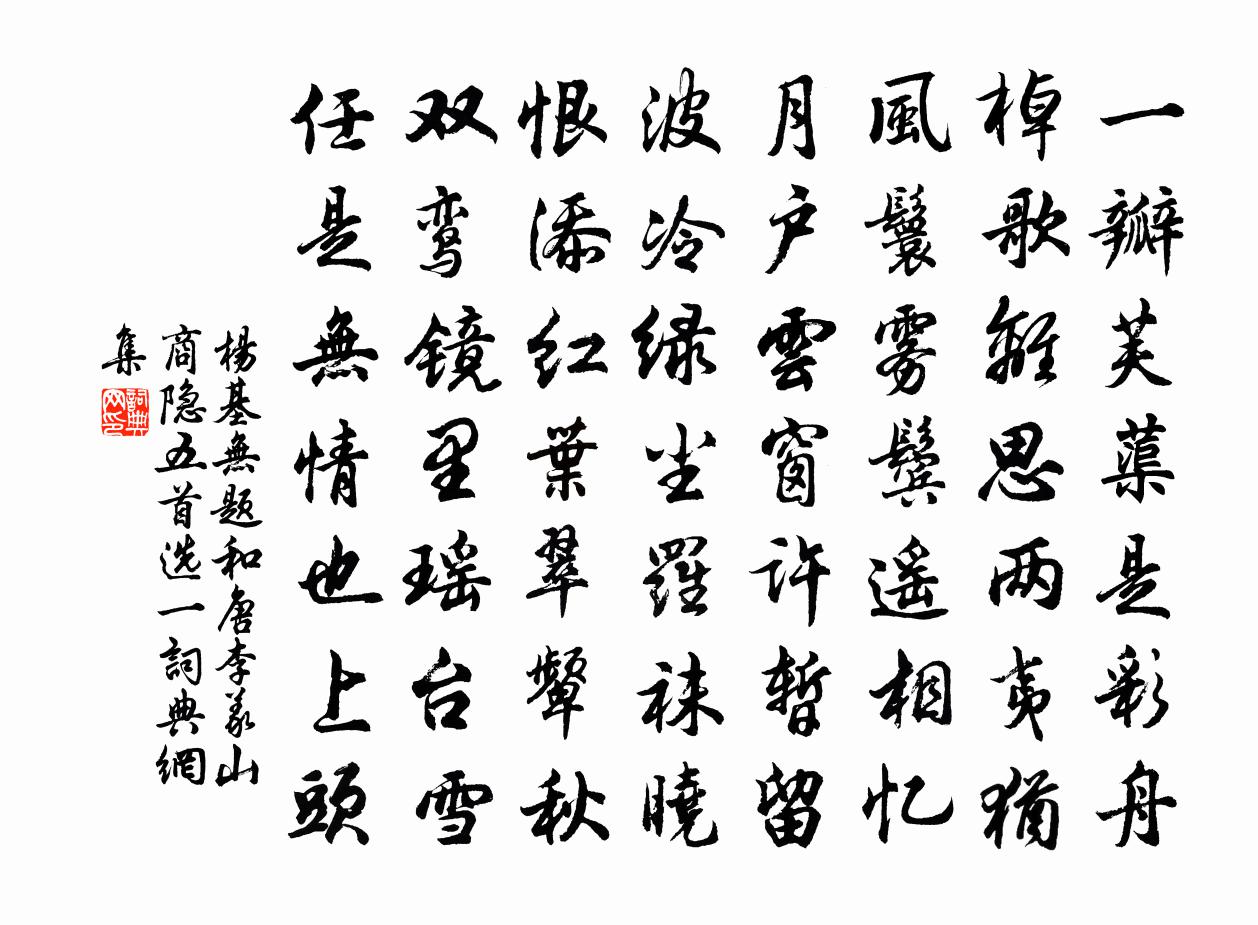 一瓣芙蕖是彩舟
棹歌離思两夷猶
風鬟雾鬢遥相忆
月户雲窗许暫留
波冷绿尘羅袜曉
恨添红葉翠顰秋
双鸾镜里瑶台雪
任是無情也上頭
楊基無题和唐李義山
商隐五首选一詞典網
集
詞典
网印